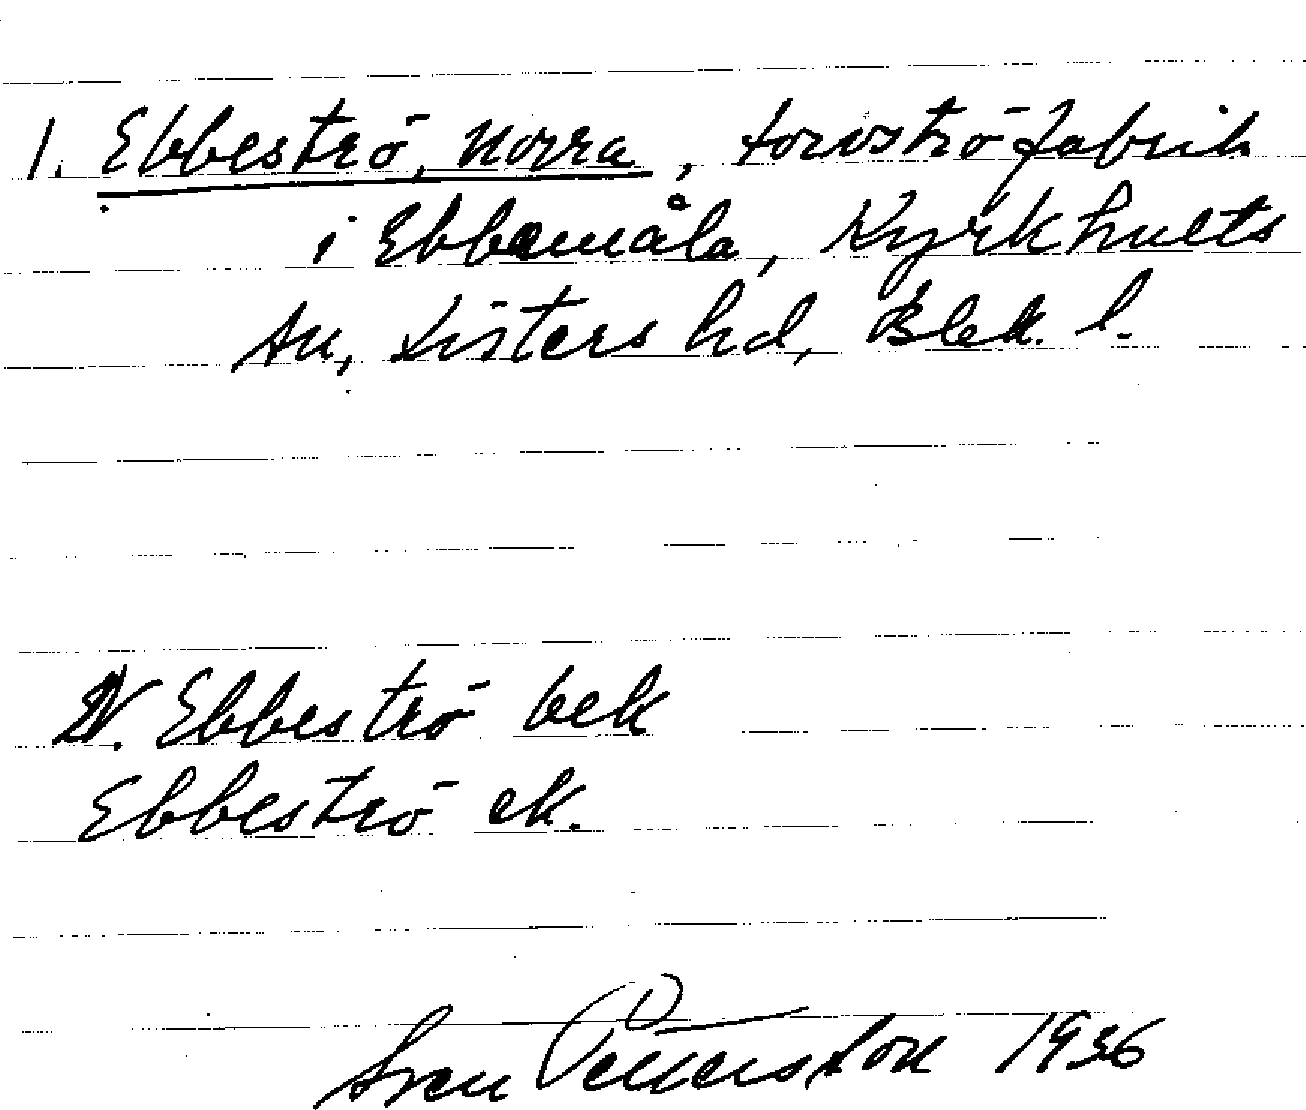 1. Ebbeströ, Norra, torvströfabrik
i Ebbemåla, Kyrkhults
sn, Listers hd, Blek. l.
N. Ebbeströ bek
Ebbeströ ek.
Sven Pettersson 1936